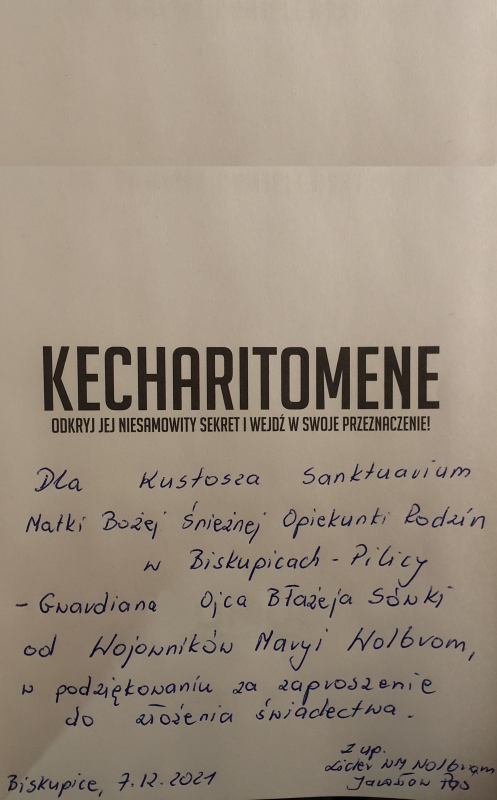 KECHARITOMENE
ODKRYJ JEJ NIESAMOWITY SEKRET I WEJDŹ W SWOJE PRZEZNACZENIE!
Dla Kustosza Sanktuarium
Matki Bożej Śnieżnej Opiekunki Rodzin
w Biskupicach - Pilicy
- Gwardiana Ojca Błażeja Sówki
od Wojowników Maryi Wolbrom,
w podziękowaniu za zaproszenie
do złożenia świadectwa.
Z up.
Lider WM Wolbrom
Biskupice, 7.12.2021 Jarosław